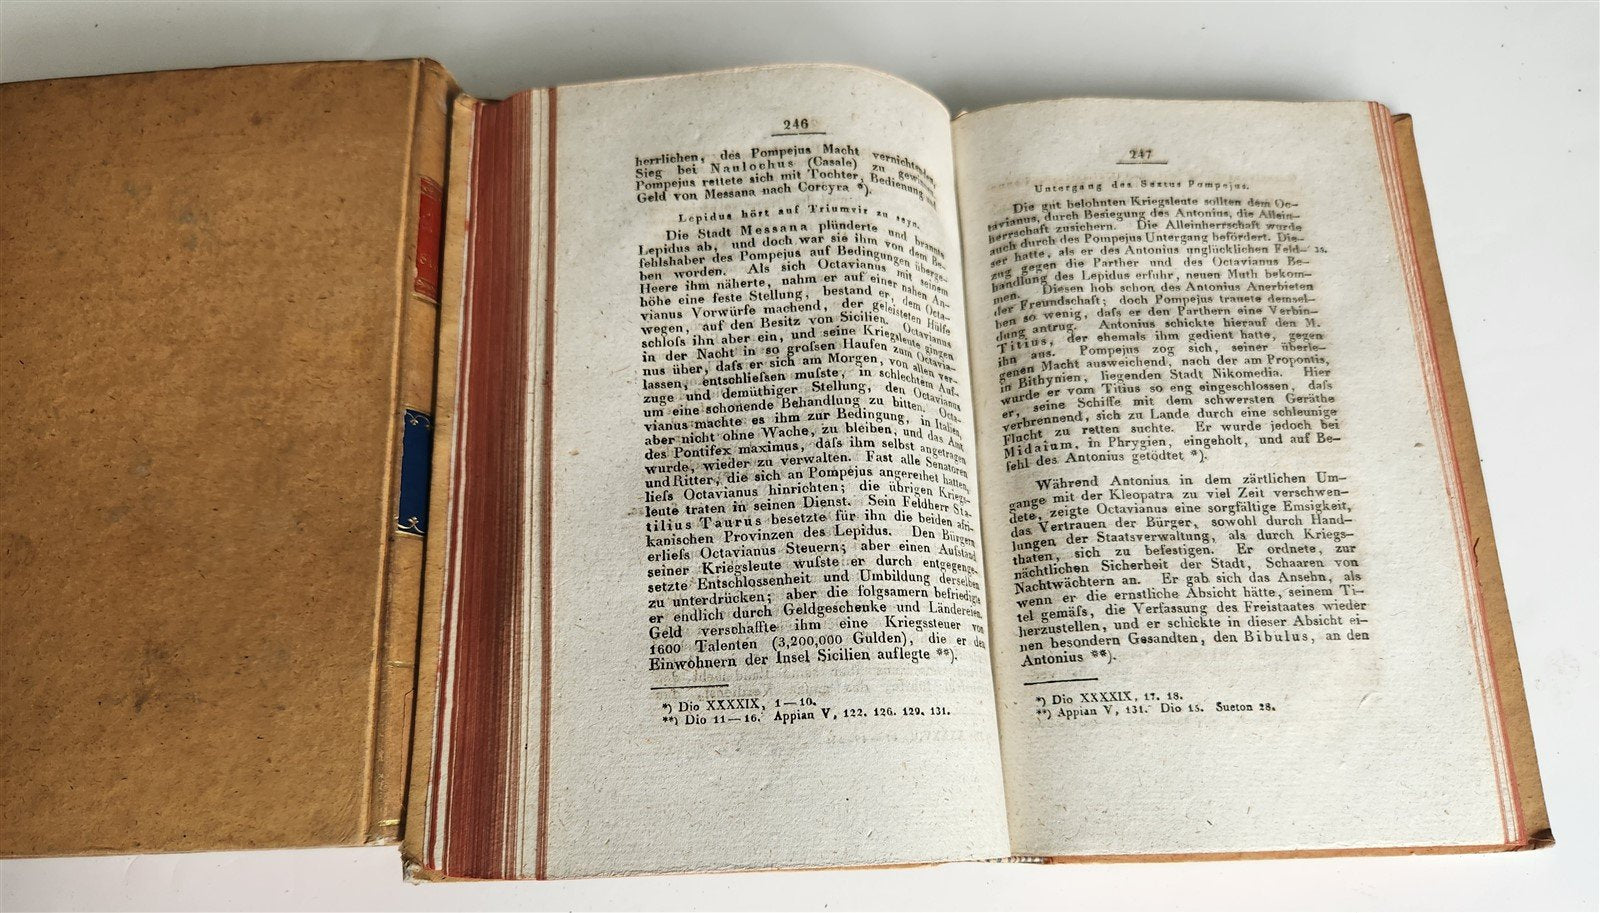 246
herrlichen, des Pompejus Macht vernichtenden,
Sieg bei Naulochus (Casale) zu gewinnen.
Pompejus rettete sich mit Tochter, Bedienung und
Geld von Messana nach Corcyra *).
Lepidus hört auf Triumvir zu seyn.
Die Stadt Messana plünderte und brannte
Lepidus ab, und doch war sie ihm von dem Be-
fehlshaber des Pompejus auf Bedingungen überge-
ben worden. Als sich Octavianus mit seinem
Heere ihm näherte, nahm er auf einer nahen An-
höhe eine feste Stellung, bestand er, dem Octa-
vianus Vorwürfe machend, der geleisteten Hülfe
wegen, auf den Besitz von Sicilien. Octavianus
schloſs ihn aber ein, und seine Kriegsleute gingen
in der Nacht in so groſsen Haufen zum Octavia-
nus über, daſs er sich am Morgen, von allen ver-
lassen, entschlieſsen muſste, in schlechtem Auf-
zuge und demüthiger Stellung, den Octavianus
um eine schonende Behandlung zu bitten. Octa-
vianus machte es ihm zur Bedingung, in Italien,
aber nicht ohne Wache, zu bleiben, und das Amt
des Pontifex maximus, daſs ihm selbst angetragen
wurde, wieder zu verwalten. Fast alle Senatoren
und Ritter, die sich an Pompejus angereihet hatten,
lieſs Octavianus hinrichten; die übrigen Kriegs-
leute traten in seinen Dienst. Sein Feldherr Sta-
tilius Taurus besetzte für ihn die beiden afri-
kanischen Provinzen des Lepidus. Den Bürgern
erlieſs Octavianus Steuern; aber einen Aufstand
seiner Kriegsleute wuſste er durch entgegenge-
setzte Entschlossenheit und Umbildung derselben
zu unterdrücken; aber die folgsamern befriedigte
er endlich durch Geldgeschenke und Ländereien.
Geld verschaffte ihm eine Kriegssteuer von
1600 Talenten (3,200,000 Gulden), die er den
Einwohnern der Insel Sicilien auflegte **).
*) Dio XXXXIX, 1—10.
**) Dio 11—16. Appian V, 122. 126. 129. 131.
247
Untergang des Sextus Pompejus.
Die gut belohnten Kriegsleute sollten dem Oc-
tavianus, durch Besiegung des Antonius, die Allein-
herrschaft zusichern. Die Alleinherrschaft wurde
auch durch des Pompejus Untergang befördert. Die-
ser hatte, als er des Antonius unglücklichen Feld- 35.
zug gegen die Parther und des Octavianus Be-
handlung des Lepidus erfuhr, neuen Muth bekom-
men. Diesen hob schon des Antonius Anerbieten
der Freundschaft; doch Pompejus trauete demsel-
ben so wenig, daſs er den Parthern eine Verbin-
dung antrug. Antonius schickte hierauf den M.
Titius, der ehemals ihm gedient hatte, gegen
ihn aus. Pompejus zog sich, seiner überle-
genen Macht ausweichend, nach der am Propontis,
in Bithynien, liegenden Stadt Nikomedia. Hier
wurde er vom Titius so eng eingeschlossen, daſs
er, seine Schiffe mit dem schwersten Geräthe
verbrennend, sich zu Lande durch eine schleunige
Flucht zu retten suchte. Er wurde jedoch bei
Midaium, in Phrygien, eingeholt, und auf Be-
fehl des Antonius getödtet *).
Während Antonius in dem zärtlichen Um-
gange mit der Kleopatra zu viel Zeit verschwen-
dete, zeigte Octavianus eine sorgfältige Emsigkeit,
das Vertrauen der Bürger, sowohl durch Hand-
lungen der Staatsverwaltung, als durch Kriegs-
thaten, sich zu befestigen. Er ordnete, zur
nächtlichen Sicherheit der Stadt, Schaaren von
Nachtwächtern an. Er gab sich das Ansehn, als
wenn er die ernstliche Absicht hätte, seinem Ti-
tel gemäſs, die Verfassung des Freistaates wieder
herzustellen, und er schickte in dieser Absicht ei-
nen besondern Gesandten, den Bibulus, an den
Antonius **).
*) Dio XXXXIX, 17. 18.
**) Appian V, 131. Dio 15. Sueton 28.